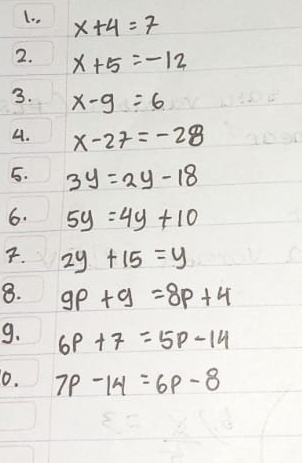 1. x+4=7
2. x+5=-12
3. x-9=6
4. x-27=-28
5. 3y=2y-18
6. 5y=4y+10
7. 2y+15=y
8. 9p+9=8p+4
9. 6p+7=5p-14
0. 7p-14=6p-8